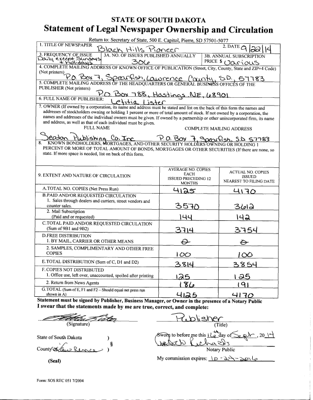 STATE OF SOUTH DAKOTA
Statement of Legal Newspaper Ownership and Circulation
Return to: Secretary of State, 500 E. Capitol, Pierre, SD 57501-5077
1. TITLE OF NEWSPAPER Black Hills Pioneer 2. DATE 9/22/14
3. FREQUENCY OF ISSUE Daily except Sundays & Holidays 3A. NO. OF ISSUES PUBLISHED ANNUALLY 306 3B. ANNUAL SUBSCRIPTION PRICE $ Various
4. COMPLETE MAILING ADDRESS OF KNOWN OFFICE OF PUBLICATION (Street, City, County, State and ZIP+4 Code) (Not printers)
PO Box 7, Spearfish, Lawrence County, SD, 57783
5. COMPLETE MAILING ADDRESS OF THE HEADQUARTERS OR GENERAL BUSINESS OFFICES OF THE PUBLISHER (Not printers)
PO Box 788, Hastings, NE, 68901
6. FULL NAME OF PUBLISHER: Letitia Lister
7. OWNER (If owned by a corporation, its name and address must be stated and list on the back of this form the names and addresses of stockholders owning or holding 1 percent or more of total amount of stock. If not owned by a corporation, the names and addresses of the individual owners must be given. If owned by a partnership or other unincorporated firm, its name and address, as well as that of each individual must be given.
FULL NAME COMPLETE MAILING ADDRESS
Seaton Publishing Co. Inc PO Box 7, Spearfish, SD 57783
8. KNOWN BONDHOLDERS, MORTGAGES, AND OTHER SECURITY HOLDERS OWNING OR HOLDING 1 PERCENT OR MORE OF TOTAL AMOUNT OF BONDS, MORTGAGES OR OTHER SECURITIES (If there are none, so state. If more space is needed, list on back of this form.
9. EXTENT AND NATURE OF CIRCULATION AVERAGE NO. COPIES EACH ISSUED PRECEDING 12 MONTHS ACTUAL NO. COPIES ISSUED NEAREST TO FILING DATE
A. TOTAL NO. COPIES (Net Press Run) 4125 4170
B. PAID AND/OR REQUESTED CIRCULATION
1. Sales through dealers and carriers, street vendors and counter sales. 3570 3612
2. Mail Subscription (Paid and or requested) 144 142
C. TOTAL PAID AND/OR REQUESTED CIRCULATION (Sum of 9B1 and 9B2) 3714 3754
D. FREE DISTRIBUTION
1. BY MAIL, CARRIER OR OTHER MEANS 0 0
2. SAMPLES, COMPLIMENTARY AND OTHER FREE COPIES 100 100
E. TOTAL DISTRIBUTION (Sum of C, D1 and D2) 3814 3854
F. COPIES NOT DISTRIBUTED
1. Office use, left over, unaccounted, spoiled after printing 125 125
2. Return from News Agents 186 191
G. TOTAL (Sum of E, F1 and F2 - Should equal net press run shown in A) 4125 4170
Statement must be signed by Publisher, Business Manager, or Owner in the presence of a Notary Public
I swear that the statements made by me are true, correct, and complete:
Publisher
(Signature) (Title)
State of South Dakota )
§
County of Lawrence )
Sworn to before me this 16 day of Sept. 2014
Notary Public
(Seal) My commission expires: 10-29-2016
Form: SOS REC 051 7/2004